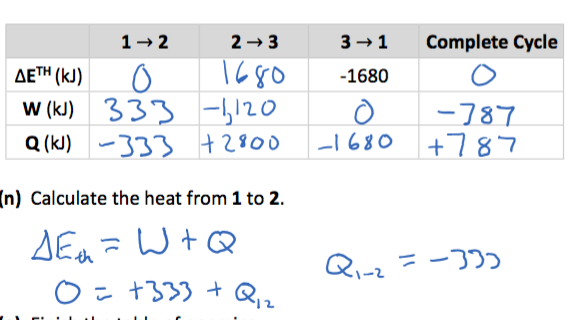 1→2 2→3 3→1 Complete Cycle
ΔEᵀᴴ (kJ) 0 1680 -1680 0
W (kJ) 333 -1,120 0 -787
Q (kJ) -333 +2800 -1680 +787
(n) Calculate the heat from 1 to 2.
ΔEth = W + Q
Q1-2 = -333
0 = +333 + Q12